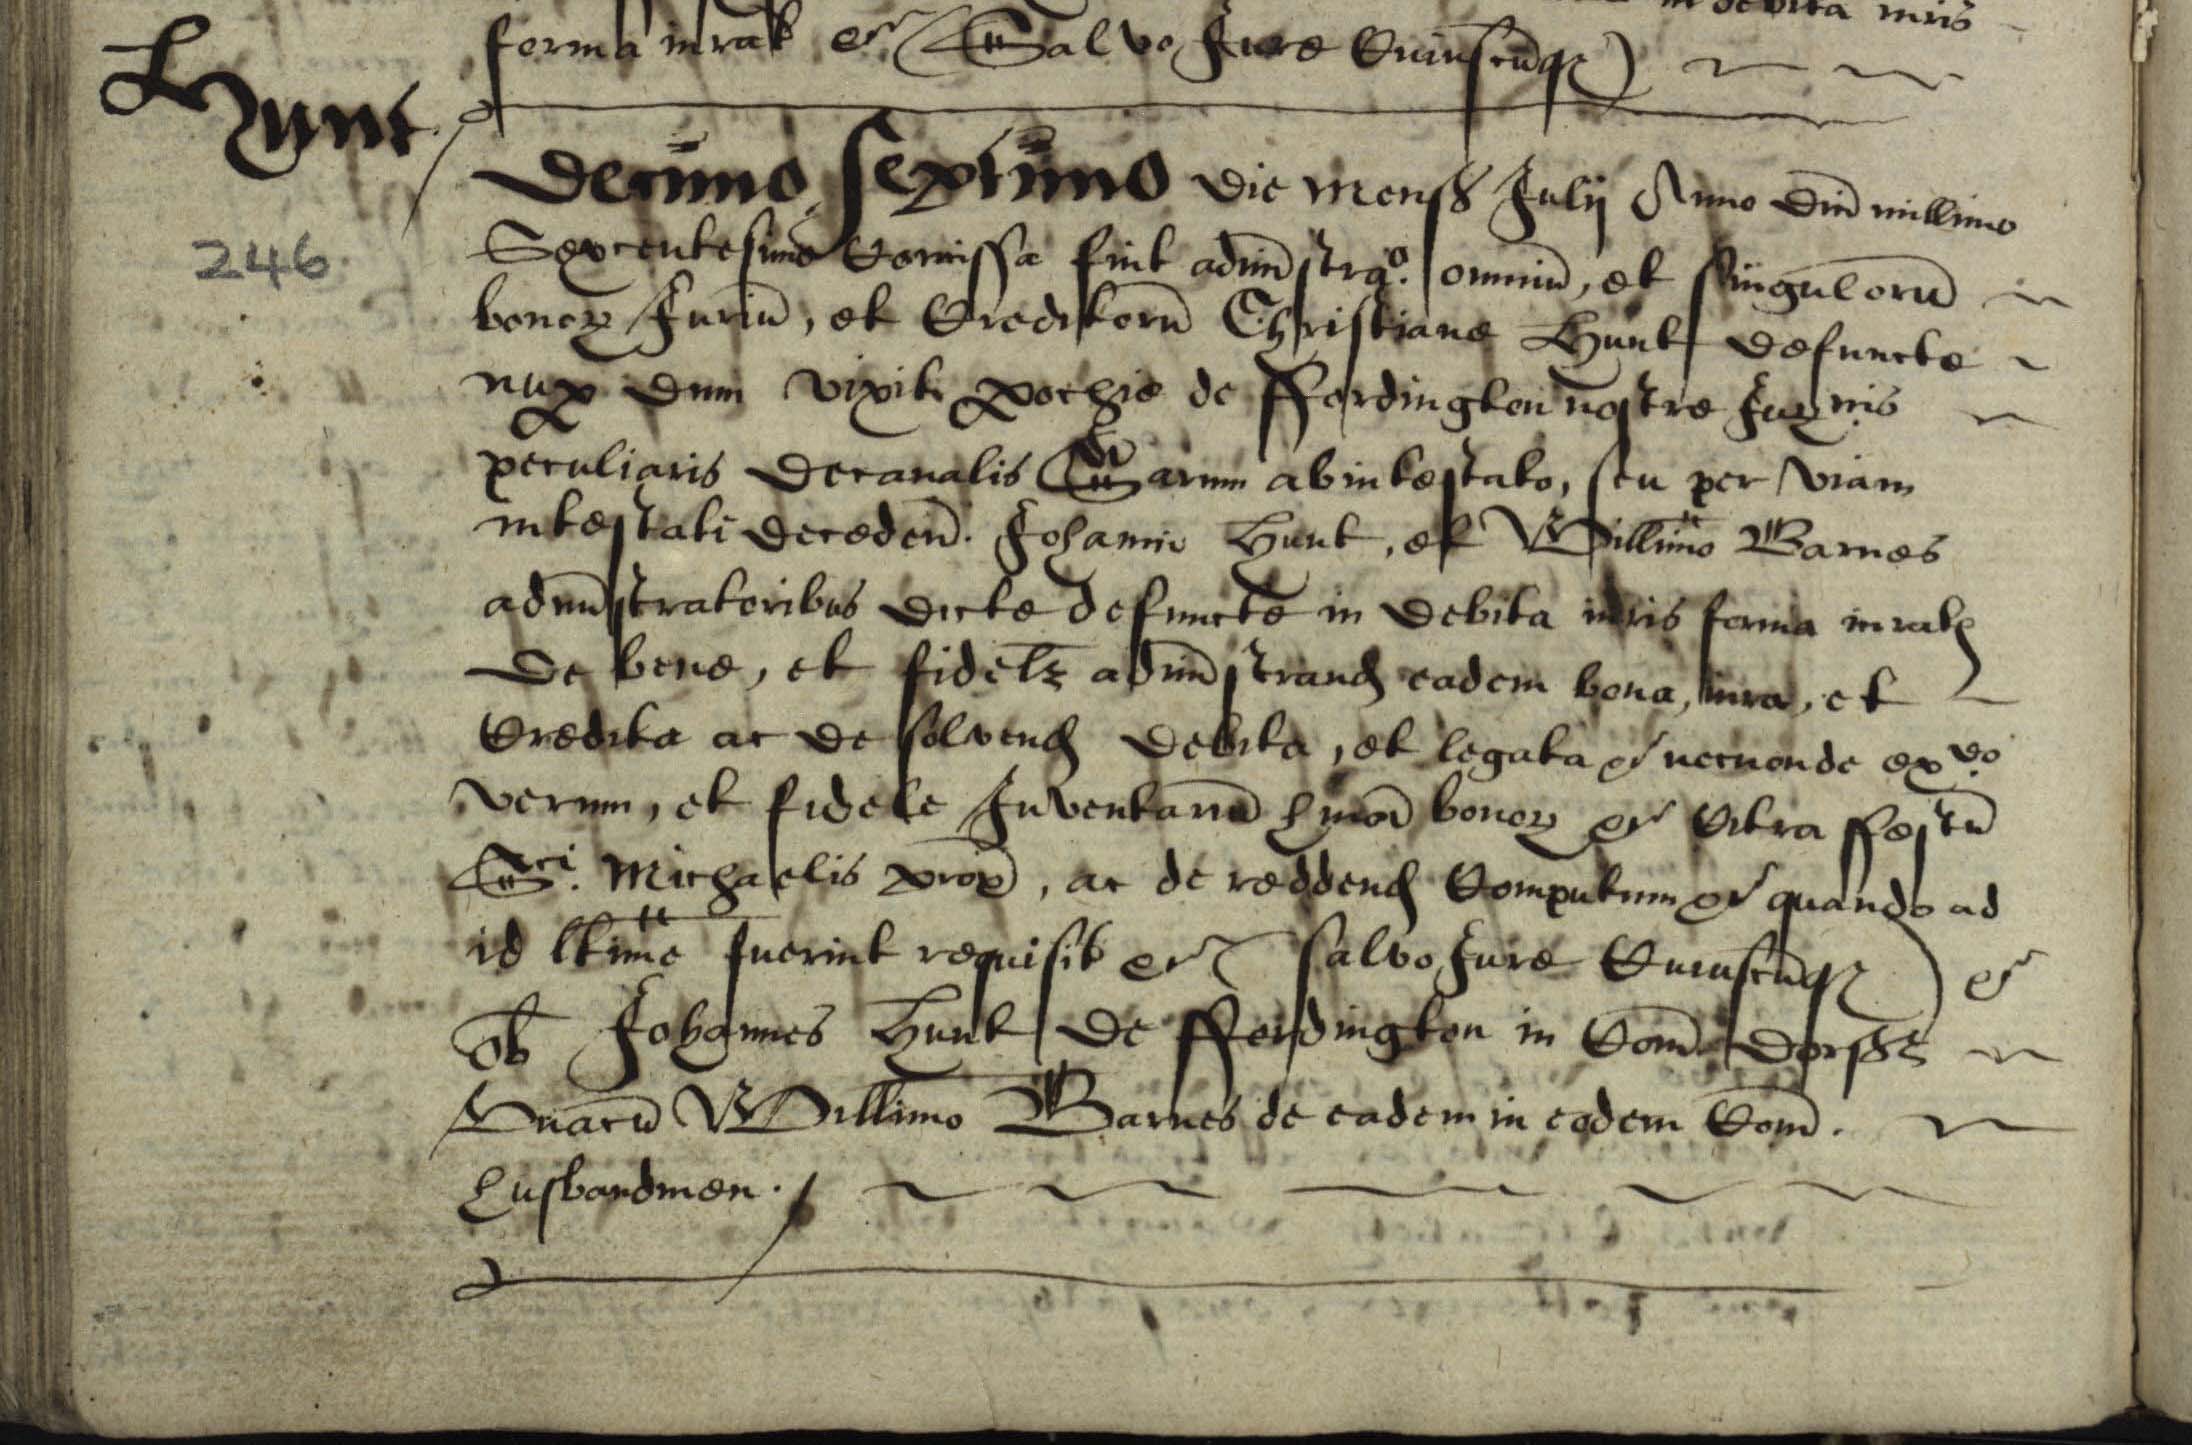 in debita iuris
forma iurat etc Salvo Jure Cuiuscūqz
Hunt
Decimo Septimo die mens Julij Anno Dn̄i millimo
246
Sexcentesimo Comissa fuit admn̄straco. omniū, et singulorū
bonor Juriū, et Creditorū Christiane Hunt defuncte
nup dum vixit pochie de ffordington nostre Jur̄nis
peculiaris Decanalis Sarum abintestato, seu per viam
intestati deceden̄. Johanni Hunt, et Willimo Barnes
admn̄stratoribus dicte defuncte in debita iuris forma iurat
De bene, et fidelr admn̄strand eadem bona, iura, et
Credita ac de solvend debita, et legata etc necnon de exdo
verum, et fidele Inventariū hmōi bonor etc Citra ffestū
Sci. Michaelis prox̄, ac de reddend Computum etc quando ad
id ltime fuerint requisit etc salvo Jure Cuiuscūqz etc
ob Johannes Hunt de ffordington in Com̄ Dorss
Unacū Willimo Barnes de eadem in eodem Com̄.
husbandmen.